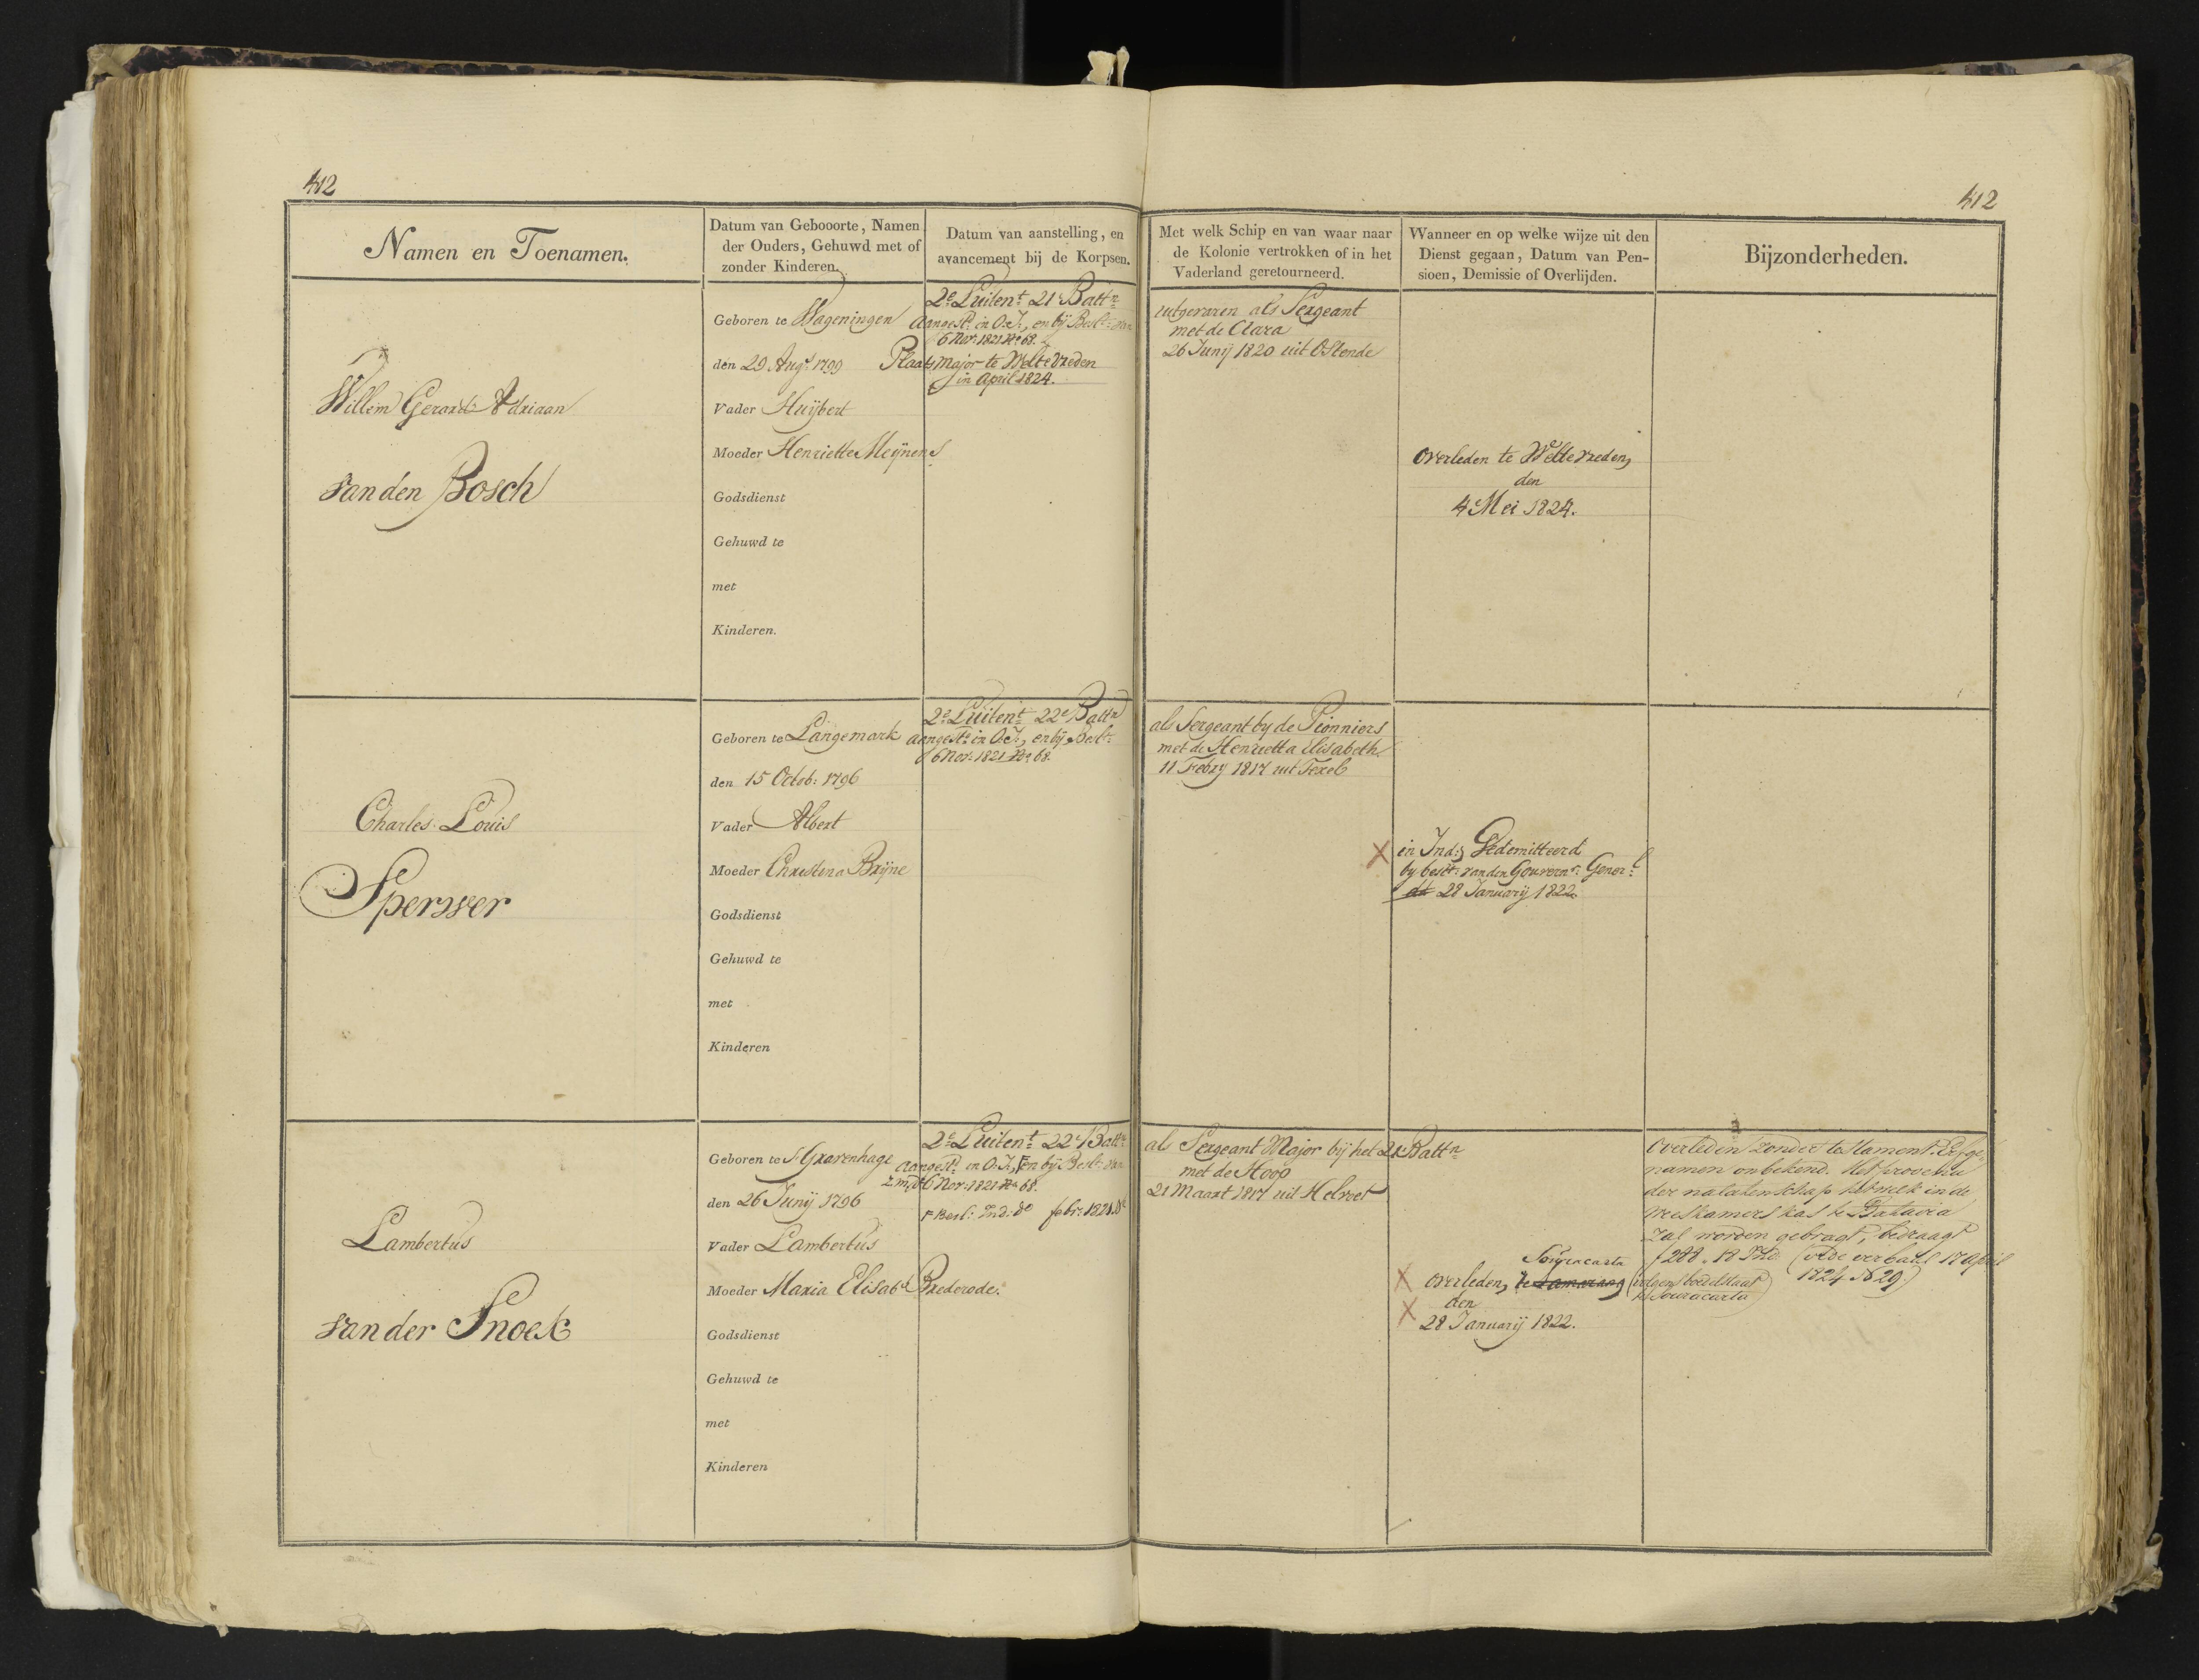 412
412
Namen en Toenamen.
Datum van Gebooorte, Namen
der Ouders, Gehuwd met of
zonder Kinderen.
Datum van aanstelling, en
avancement bij de Korpsen.
Met welk Schip en van waar naar
de Kolonie vertrokken of in het
Vaderland geretourneerd.
Wanneer en op welke wijze uit den
Dienst gegaan, Datum van Pen-
sioen, Demissie of Overlijden.
Bijzonderheden.
Willem Gerard Adriaan
van den Bosch
Geboren te Wageningen
den 29 Augt 1799
Vader Huijbert
Moeder Henriette Meijners
Godsdienst
Gehuwd te
met
Kinderen.
2e Luitent 21e Battn
aangest: in O.I., en bij Beslt: van
6 Nov: 1821 No 68.
Plaats Major te Weltevreden
in April 1824.
uitgevaren als Sergeant
met de Clara
26 Junij 1820 uit Ostende
Overleden te Weltevreden,
den
4 Mei 1824.
Charles Louis
Sperwer
Geboren te Langemark
den 15 Octob: 1796
Vader Albert
Moeder Christina Brijne
Godsdienst
Gehuwd te
met
Kinderen
2e Luitent 22e Battn
aangest: in O.I., en bij Beslt:
6 Nov: 1821 No 68.
als Sergeant by de Pionniers
met de Henrietta Elisabeth
11 Febry 1817 uit Texel
X in Ind: Gedemitteerd
by beslt: van den Gouvernr: Generl:
dd 28 Januarij 1822
Lambertus
van der Snoek
Geboren te S'Gravenhage
den 26 Junij 1796
Vader Lambertus
Moeder Maria Elisabt Brederode.
Godsdienst
Gehuwd te
met
Kinderen
2e Luitent 22e Battn
aangest: in O.I., en bij Beslt: van
6 Nov: 1821 No 68.
Besl: Ind: do febr: 1821
als Sergeant Major bij het 21 Battn
met de Hoop
21 Maart 1817 uit Helvoet
Souracarta
X Overleden, te Samarang
X den
28 Januarij 1822.
(volgens boedelstaat
te Souracarta)
Overleden zonder testament. Erfge
namen onbekend. Het provenu
der nalatenschap hetwelk in de
weeskamers kas te Batavia
zal worden gebragt, bedraagt
f 288.18 (vide verbaal 17 April
1824 No 29.)